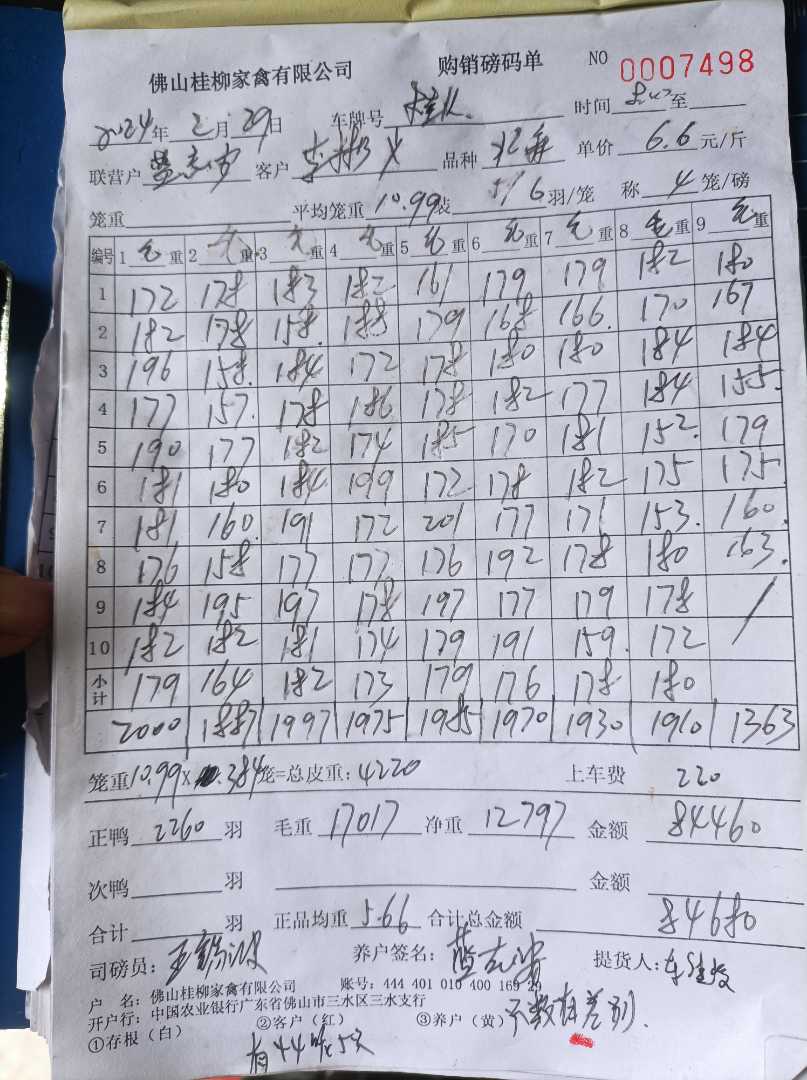 佛山桂柳家禽有限公司 购销磅码单 NO 0007498
2024年 2月 29日 车牌号 时间 至
联营户 客户 品种 单价 6.6 元/斤
笼重 平均笼重 10.99 装 5/6 羽/笼 称 4 笼/磅
编号 1 毛 重 2 毛 重 3 毛 重 4 毛 重 5 毛 重 6 毛 重 7 毛 重 8 毛 重 9 毛 重
1 172 178 183 182 161 179 179 182 180
2 182 178 158. 188 179 168 166. 170 167
3 196 158. 184 172 178 180 180 184 184
4 177 157. 178 186 178 182 177 184 155.
5 190 177 182 174 185 170 181 152. 179
6 181 180 184 199 172 178 182 175 175
7 181 160. 191 172 201 177 171 153. 160.
8 176 158 177 177 176 192 178 180 163.
9 184 195 197 178 197 177 179 178 /
10 182 182 181 174 179 191 159. 172
小计 179 164 182 173 179 176 178 180
2000 1887 1997 1975 1985 1970 1930 1910 1363
笼重10.99× 384笼=总皮重: 4220 上车费 220
正鸭 2260 羽 毛重 17017 净重 12797 金额 84460
次鸭 羽 金额
合计 羽 正品均重 5.66 合计总金额 84680
司磅员: 养户签名: 提货人:
户 名: 佛山桂柳家禽有限公司 账号: 444 401 010 400 169 29
开户行: 中国农业银行广东省佛山市三水区三水支行
①存根(白) ②客户(红) ③养户(黄) 只数有差别.
有44吃5只